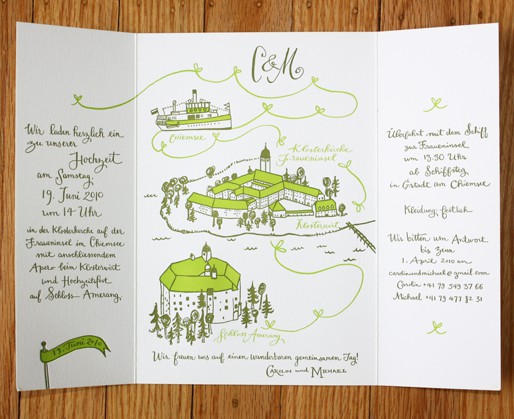 Wir laden herzlich ein
zu unserer
Hochzeit
am Samstag,
19. Juni 2010
um 14 Uhr
in der Klosterkirche auf der
Fraueninsel im Chiemsee
mit anschliessendem
Apero beim Klosterwirt
und Hochzeitsfest
auf Schloss Amerang.
19. Juni 2010
C&M
Chiemsee
Klosterkirche
Fraueninsel
Klosterwirt
Schloss Amerang
Wir freuen uns auf einen wunderbaren gemeinsamen Tag!
Carolin und Michael
Überfahrt mit dem Schiff
zur Fraueninsel
um 13.30 Uhr
ab Schiffsteg
in Gstadt am Chiemsee
Kleidung: festlich
Wir bitten um Antwort
bis zum
1. April 2010 an
carolinundmichael@gmail.com
Carolin +41 79 549 37 66
Michael +41 79 477 82 31